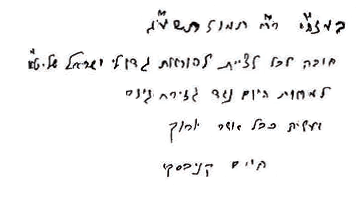 בעזה"י ר"ח תמוז תשע"ג
חובה לכל לציית להוראות גדולי ישראל שליט"א
למחות היום נגד גזירת גיוס
ועשית ככל אשר יורוך
חיים קניבסקי